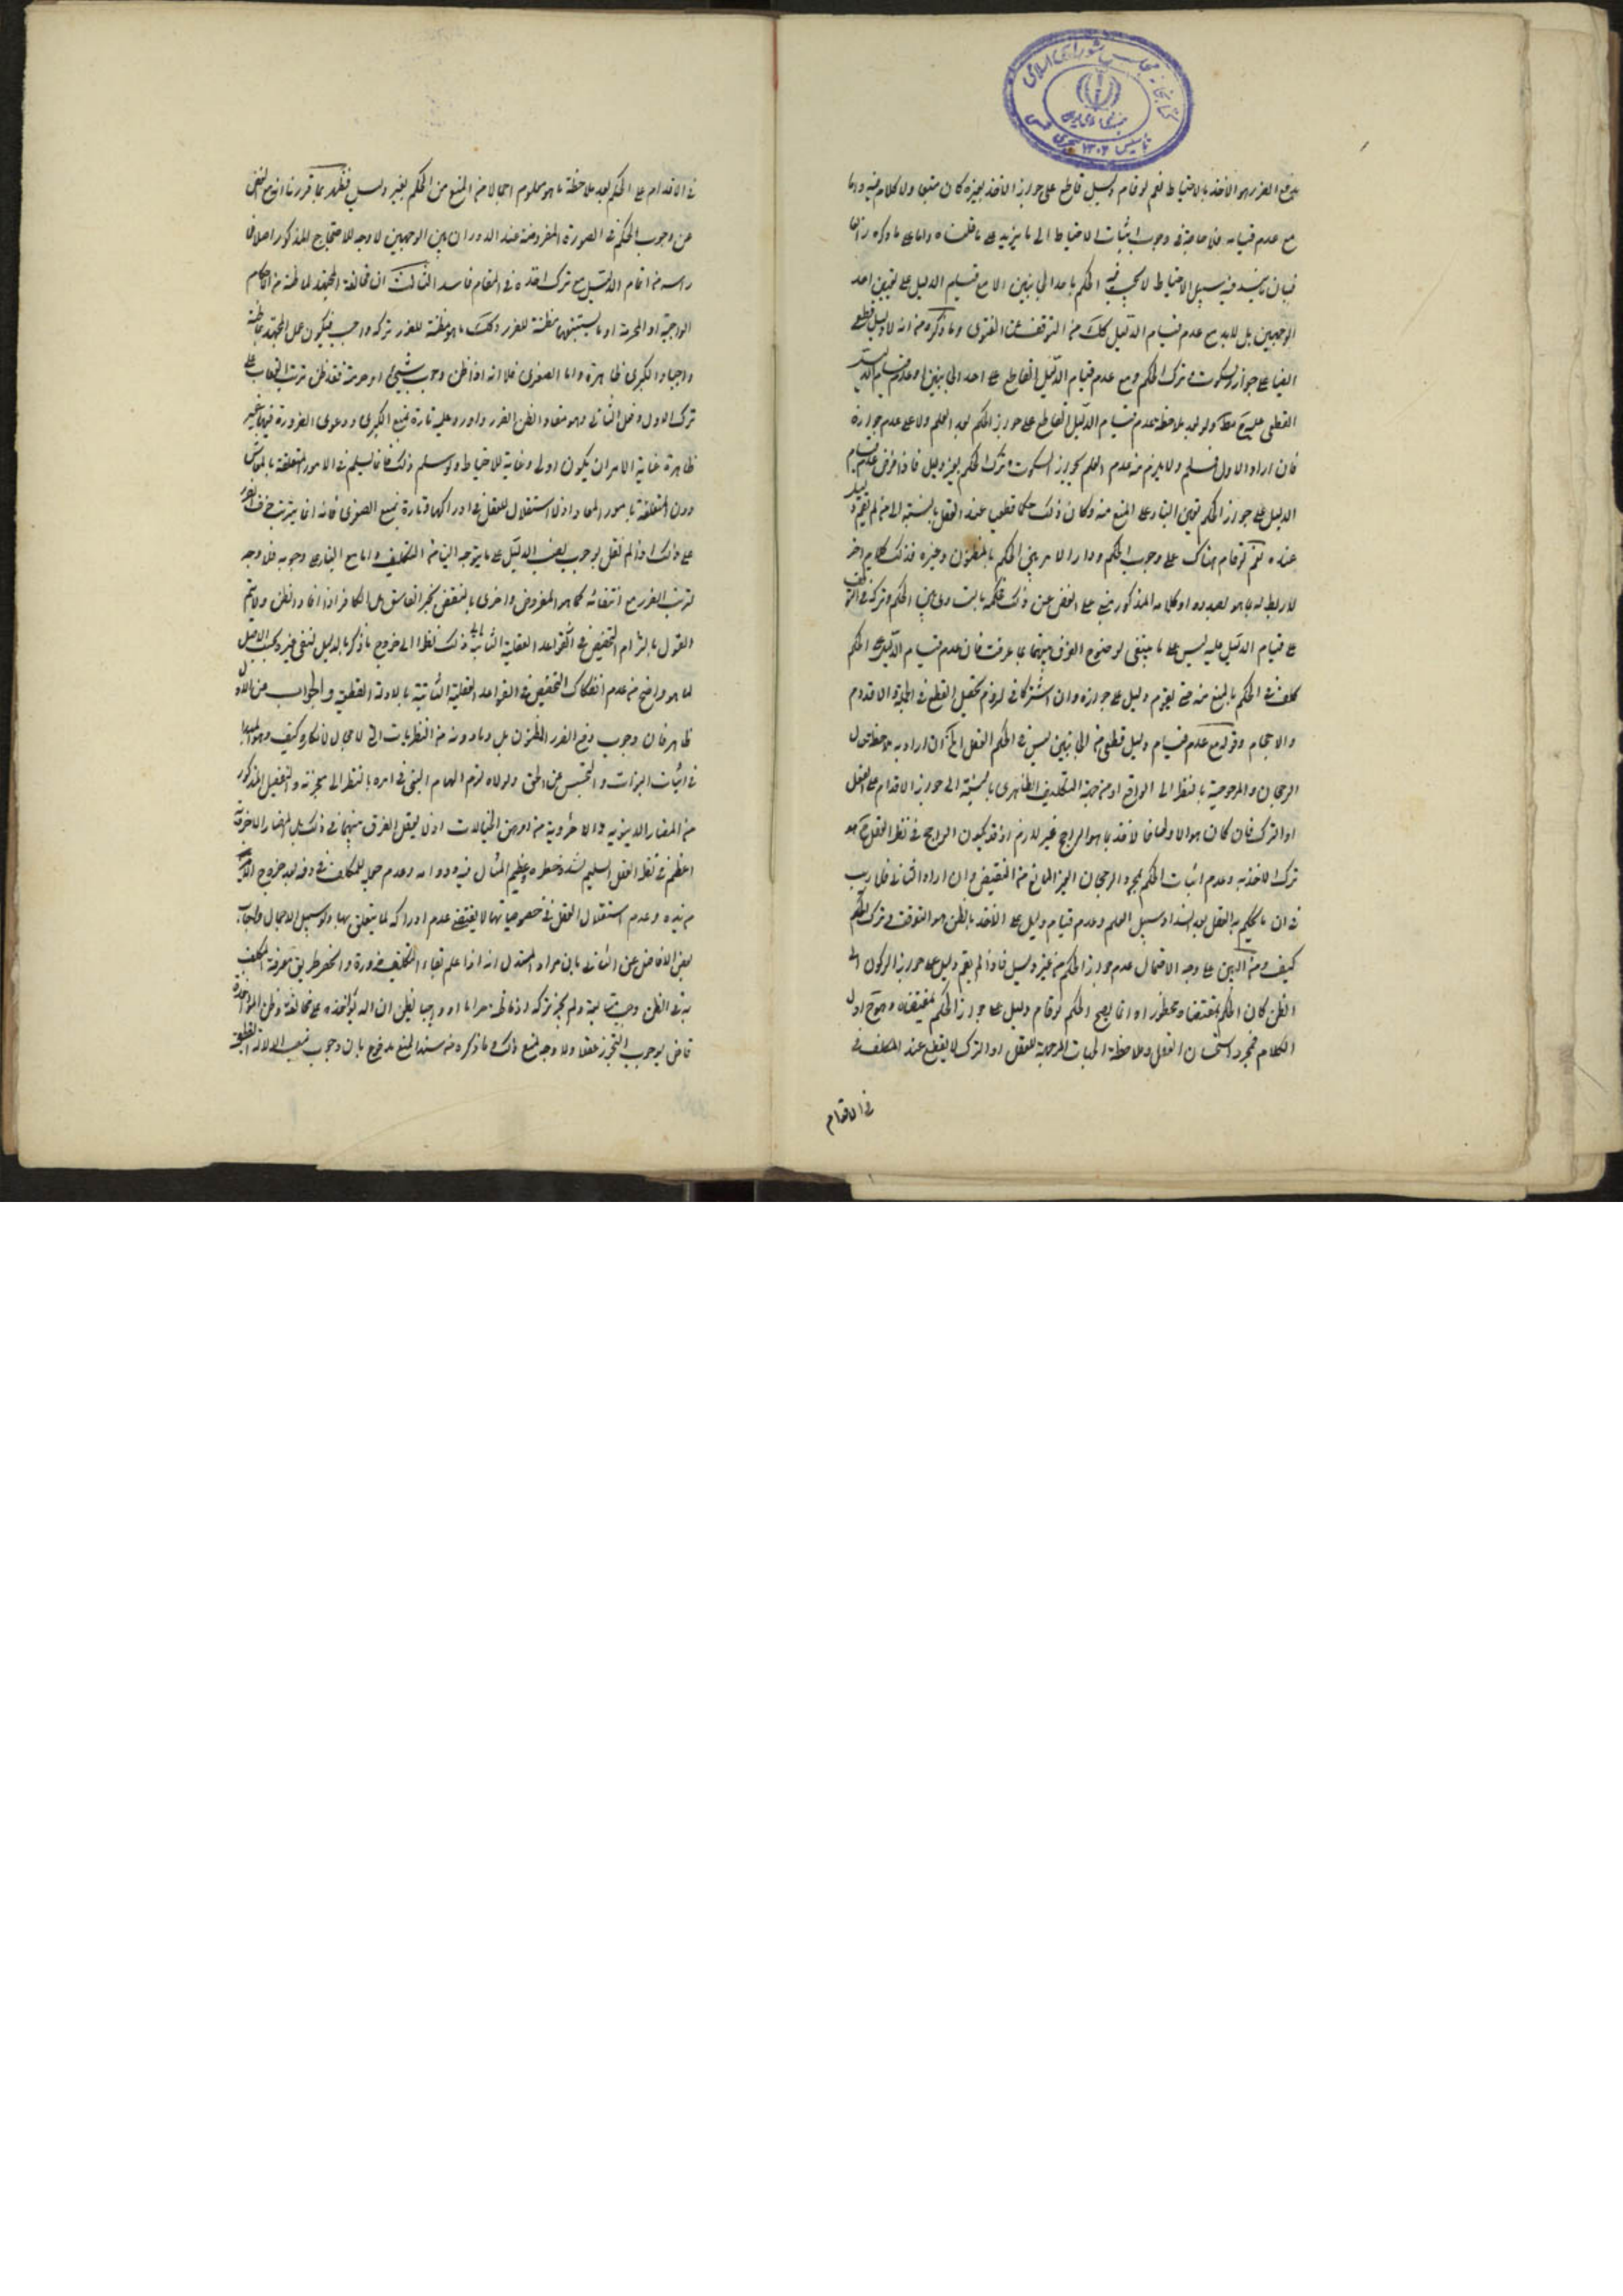 كتابخانه مجلس شورای اسلامی
تاسیس ۱۳۰۲
هو الاخذ بالاحتياط نعم لو قام دليل قاطع على جواز الاخذ بغيره كان متبعا ولا كلام فيه واما
مع عدم قيامه فلا حاجة في وجوب اثبات الاحتياط الى ما يزيد على ما قلناه واما على ما ذكره
فيه سبيل الاحتياط لا يجب فيه الحكم باحد الجانبين الا مع تسليم الدليل على تعيين احد
الوجهين بل لا بد مع عدم قيام الدليل كك من التوقف عن الفتوى وما ذكره من انه لا دليل قطعى
ايضا على جواز السكوت وترك الحكم ومع عدم قيام الدليل القاطع على احد الجانبين وعدم قيام الدليل
القطعى عليه ولو بعد ملاحظة عدم قيام الدليل القاطع على جواز الحكم بعد العلم ولا على عدم جوازه
فان اراد الاول فمسلم ولا يلزم منه عدم العلم بجواز السكوت وترك الحكم بغير دليل فاذا فرض عدم قيام
الدليل على جواز الحكم تعين البناء على المنع منه وكان ذلك حكما قطعيا عند العقل بالنسبة الى من لم يقم
عنده نعم لو قام هناك على وجوب الحكم ودار الامر بين الحكم بالمظنون وغيره فذلك كلام اخر
لا ربط له بما هو بصدده او كلامه المذكور مبنى على الغض عن ذلك فحكمه بتساوى بين الحكم وتركه في التوقف
على قيام الدليل عليه ليس على ما ينبغى لوضوح الفرق بينهما بما عرفت فان عدم قيام الدليل على الحكم
كاف في الحكم بالمنع منه حتى يقوم دليل على جوازه وان اشتركا في لزوم تحصيل القطع في الجملة الاقدام
والاحجام وقوله مع عدم قيام دليل قطعى من الجانبين ليس في الحكم العقل الخ ان اراد به ملاحظة
الرجحان والمرجوحية بالنظر الى الواقع او من جهة التكليف الظاهرى بالنسبة الى جواز الاقدام على الفعل
او الترك فان كان هو الاول فالاخذ بما هو الراجح غير لازم اذ قد يكون الراجح في نظر العقل هو
ترك الاخذ به وعدم اثبات الحكم بمجرد الرجحان الغير المانع من النقيض وان اراد الثانى فلا ريب
في ان ما يحكم به العقل بعد انسداد سبيل العلم وعدم قيام دليل على الاخذ بالظن هو التوقف في ترك الحكم
كيف ومن البين على وجه الاحتمال عدم جواز الحكم من غير دليل فاذا لم يقم دليل على جواز الركون الى
الظن كان الحكم بمقتضاه محظورا وانما يصح الحكم لو قام دليل على جواز الحكم بمقتضاه
الكلام فمجرد استحسان العقل وملاحظة الجهات المرجحة للفعل او الترك لا يقطع عند المكلف في
في الاقدام
في الاقدام على الحكم بعد ملاحظة ما هو معلوم اجمالا من المنع من الحكم بغير دليل فظهر بما قررنا انه مع الغض
عن وجوب الحكم في الصورة المفروضة عند الدوران بين الوجهين لا وجه للاحتجاج المذكور اصلا
راسه من اتمام الدليل مع ترك اخذه في المقام فاسد الثالث ان مخالفة المجتهد لما ظنه من الاحكام
الواجبة او المحرمة او ما يستتبعها مظنة للضرر وكلما هو مظنة للضرر تركه واجب فيكون عمل المجتهد بما ظنه
واجبا والكبرى ظاهرة واما الصغرى فلانه اذا ظن وجوب شيئ او حرمته فقد ظن ترتب العقاب على
ترك الاول وفعل الثانى وهو مفاد الظن الضرر واورد عليه تارة بمنع الكبرى ودعوى الضرورة فيها غير
ظاهرة غاية الامر ان يكون اولى رعاية للاحتياط ولو سلم ذلك فانما يسلم في الامور المتعلقة بالمعاش
دون المتعلقة بامور المعاد اذ لا استقلال للعقل في ادراكها وتارة بمنع الصغرى فانه انما يترتب خوف الضرر
على ذلك اذا لم نقل بوجوب نصب الدليل على ما يتوجه الينا من التكليف واما مع البناء على وجوبه فلا وجه
لترتب الضرر مع انتفائه كما هو المفروض واخرى بالنقض بخبر الفاسق بل الكافر اذا افاد الظن ولا يتم
القول بالتزام التخصيص في القواعد العقلية الثابتة ذلك نظرا الى خروج ما ذكر بالدليل فيبقى غيره تحت الاصل
لما هو واضح من عدم انفكاك التخصيص في القواعد العقلية الثابتة بالادلة القطعية والجواب عن الاول
ظاهر فان وجوب دفع الضرر المظنون بل وما دونه من الفطريات التى لا مجال لانكاره كيف وهو المبنى
في اثبات النبوات والتجسس عن الحق ولولاه لزم افحام النبى في امره بالنظر الى معجزته والتفصيل المذكور
من المضار الدينوية والاخروية من اوهن الخيالات اذ لا يعقل الفرق بينهما في ذلك بل المضار الاخروية
اعظم في نظر العقل السليم لشدة خطره وعظيم المثال فيه ودوامه وعدم حيلة للمكلف في دفعه بعد خروج الامر
من يده وعدم استقلال العقل في خصوصياتها لا يقتضى عدم ادراكه لما يتعلق بها ولو سبيل الاجمال واجاب
بعض الافاضل عن الثانى بان مراد المستدل انه اذا علم بقاء التكليف ضرورة وانحصر طريق معرفة المكلف
به في الظن وجب متابعته ولم يجز تركه اذ ما ظنه حراما او واجبا يظن ان الله يؤاخذه على مخالفته وظن المؤاخذة
قاض بوجوب التحرز عقلا ولا وجه لمنع ذلك وما ذكره من سند المنع مدفوع بان وجوب نصب الادلة القطعية